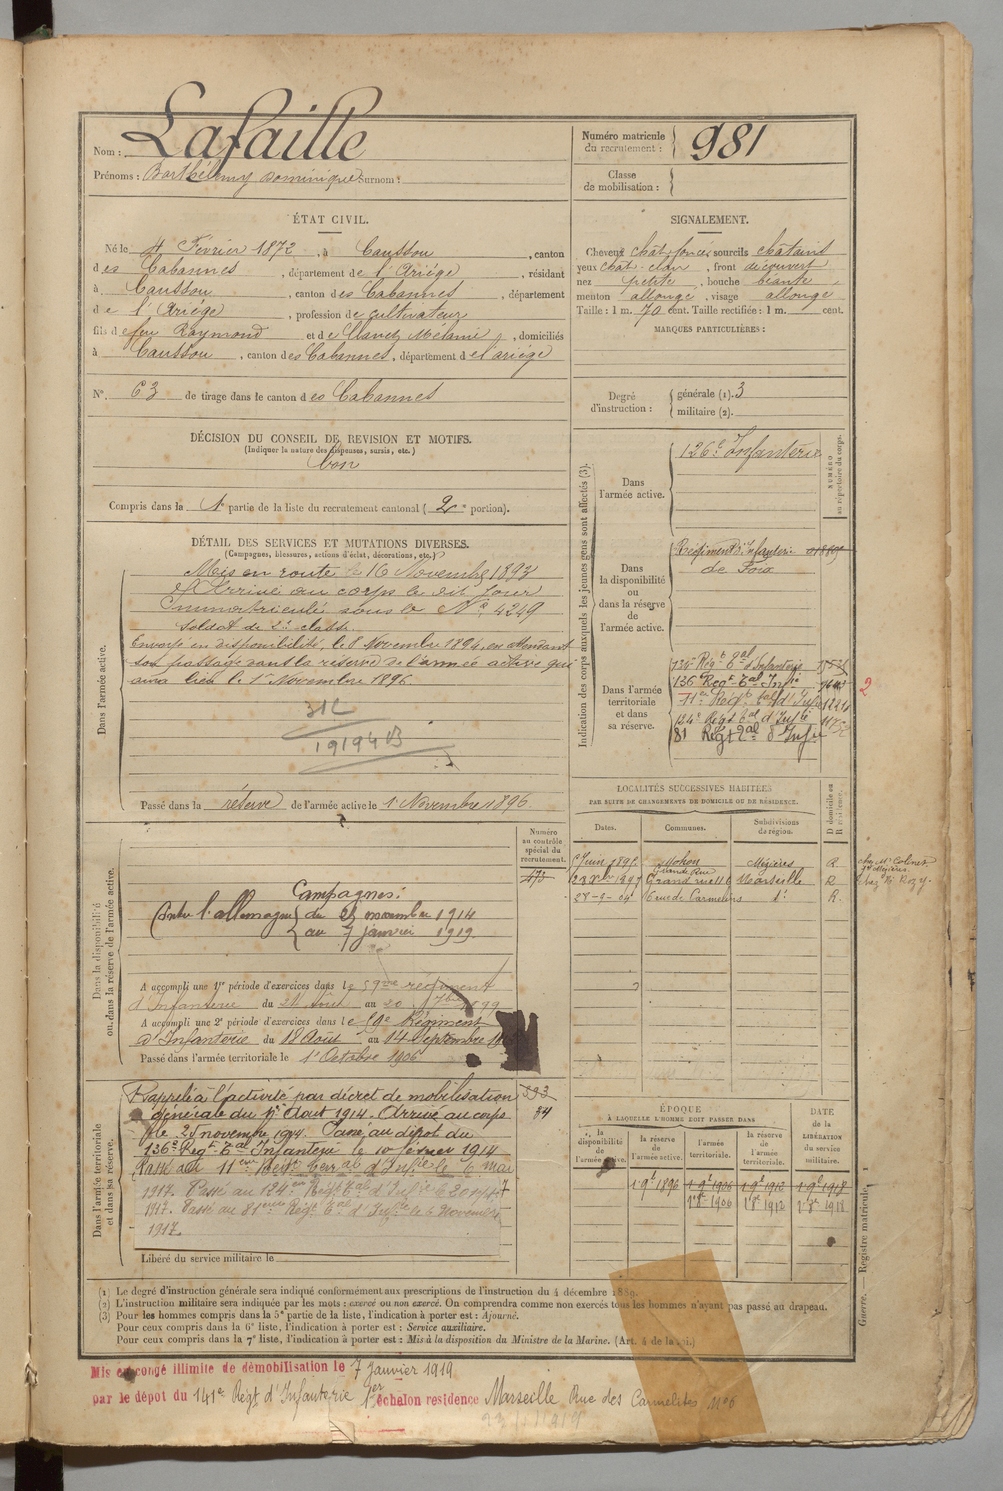 Nom : Lafaille
Prénoms : Barthélemy Dominique Surnom :
Numéro matricule du recrutement : 981
Classe de mobilisation :
ÉTAT CIVIL.
Né le 4 Février 1872, à Caussou, canton
des Cabannes, département de l'Ariége, résidant
à Caussou, canton des Cabannes, département
de l'Ariége, profession de cultivateur
fils de feu Raymond et de Clanet Mélanie, domiciliés
à Caussou, canton des Cabannes, département de l'ariége
N°. 63 de tirage dans le canton des Cabannes
SIGNALEMENT.
Cheveux chât. foncés sourcils chatains
yeux chât. clair, front découvert
nez petite, bouche béante,
menton allongé, visage allongé
Taille : 1 m. 70 cent. Taille rectifiée : 1 m. cent.
MARQUES PARTICULIÈRES :
Degré d'instruction : générale (1). 3
militaire (2).
DÉCISION DU CONSEIL DE REVISION ET MOTIFS.
(Indiquer la nature des dispenses, sursis, etc.)
bon
Compris dans la 1e partie de la liste du recrutement cantonal (2e portion).
DÉTAIL DES SERVICES ET MUTATIONS DIVERSES.
(Campagnes, blessures, actions d'éclat, décorations, etc.)
Dans l'armée active.
Mis en route le 16 Novembre 1893
Arrivé au corps le dit jour
Immatriculé sous le N° 4249
Soldat de 2e classe.
Envoyé en disponibilité, le 8 Novembre 1894, en attendant
son passage dans la réserve de l'armée active qui
aura lieu le 1er Novembre 1896
312
19194 B
Passé dans la réserve de l'armée active le 1 Novembre 1896
Indication des corps auxquels les jeunes gens sont affectés (3).
NUMÉRO au répertoire du corps.
Dans l'armée active.
126e Infanterie
Dans la disponibilité ou dans la réserve de l'armée active.
Régiment d'Infanterie
de Foix
Dans l'armée territoriale et dans sa réserve.
134e Régt Tal d'Infanterie
136e Régt Tal Infie
11e Régt Tal d'Infie
124e Régt Tal d'Infie
81 Régt Tal d'Infie
2
Numéro au contrôle spécial du recrutement.
473
Dans la disponibilité ou dans la réserve de l'armée active.
Campagnes :
Contre l'allemagne du 25 novembre 1914
au 7 janvier 1919
A accompli une 1re période d'exercices dans le 59me régiment
d'Infanterie du 24 Août au 20 7bre 1899
A accompli une 2e période d'exercices dans le 59e Régiment
d'Infanterie du 18 Août au 14 Septembre
Passé dans l'armée territoriale le 1er Octobre 1906
LOCALITÉS SUCCESSIVES HABITÉES
PAR SUITE DE CHANGEMENTS DE DOMICILE OU DE RÉSIDENCE.
Dates. Communes. Subdivisions de région. D domicile ou R résidence.
Juin 1895 Mohon Mézières R
Grande Rue
Grand rue 116 Marseille R
28-9-04 6 rue des Carmelins d° R.
Dans l'armée territoriale et dans sa réserve.
Rappelé à l'activité par décret de mobilisation
générale du 1er Aout 1914. Arrivé au corps
le 25 novembre 1914. Passé au dépot du
136e Régt Tal Infanterie le 10 février 1914
Passé au 11eme Régt Terral d'Infie le 6 mai
1917. Passé au 124eme Régt Tal d'Infie le 20
1917. Passé au 81eme Régt Tal d'Infie le 6 Novembre
1917.
Libéré du service militaire le
34
ÉPOQUE
À LAQUELLE L'HOMME DOIT PASSER DANS
DATE de la LIBÉRATION du service militaire.
la disponibilité de l'armée active. la réserve de l'armée active. l'armée territoriale. la réserve de l'armée territoriale.
1 9e 1896 1 9e 1906 1 9e 1912 1 9e 1918
1 8e 1906 1 8e 1912 1 8e 1918
(1) Le degré d'instruction générale sera indiqué conformément aux prescriptions de l'instruction du 4 décembre 1889.
(2) L'instruction militaire sera indiquée par les mots : exercé ou non exercé. On comprendra comme non exercés tous les hommes n'ayant pas passé au drapeau.
(3) Pour les hommes compris dans la 5e partie de la liste, l'indication à porter est : Ajourné.
Pour ceux compris dans la 6e liste, l'indication à porter est : Service auxiliaire.
Pour ceux compris dans la 7e liste, l'indication à porter est : Mis à la disposition du Ministre de la Marine. (Art. 4 de la loi.)
Guerre. — Registre matricule. 1
Mis en congé illimité de démobilisation le 7 Janvier 1919
par le dépot du 141e Régt d'Infanterie 1er échelon residence Marseille Rue des Carmelites N° 6